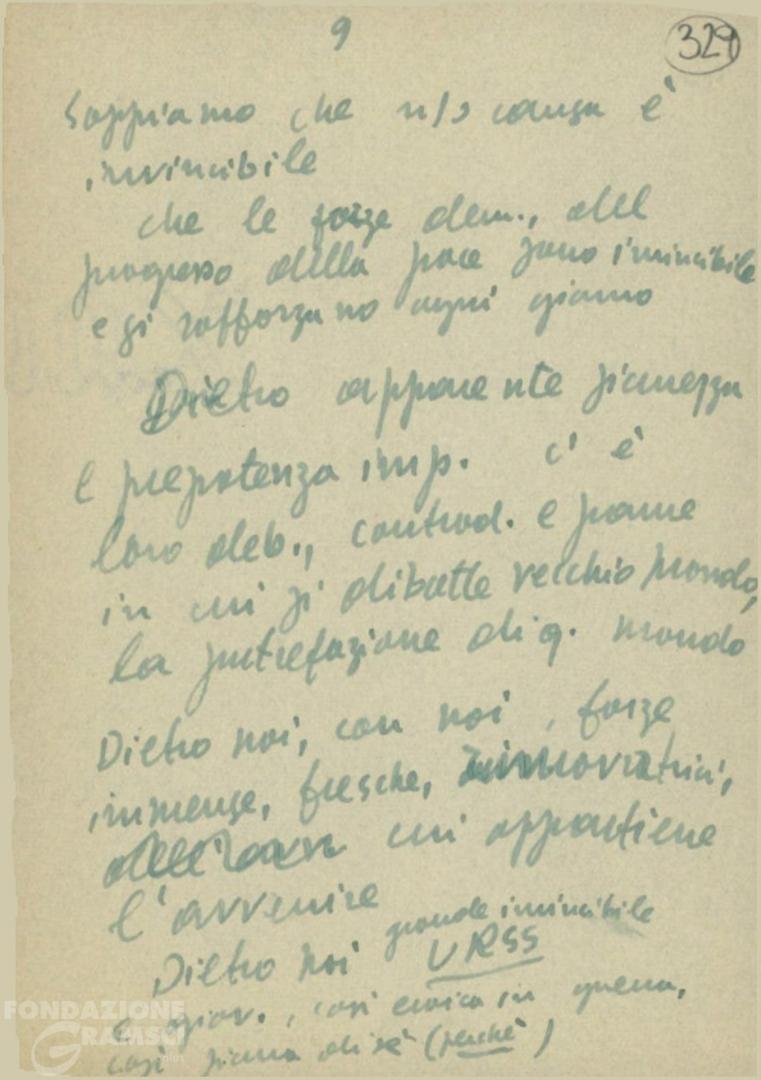 9
329
Sappiamo che n/s causa è
invincibile
che le forze dem., del
progresso della pace sono invincibile
e si rafforzano ogni giorno
Dietro apparente sicurezza
e prepotenza imp. c'è
loro deb., contrad. e paure
in cui si dibatte vecchio mondo,
la putrefazione di q. mondo
Dietro noi, con noi, forze
immense, fresche, rinnovatrici,
cui appartiene
l'avvenire
Dietro noi grande invincibile
URSS
e giov., così eroica in guerra,
così sicura di sè (perchè)
FONDAZIONE
GRAMSCI
plus